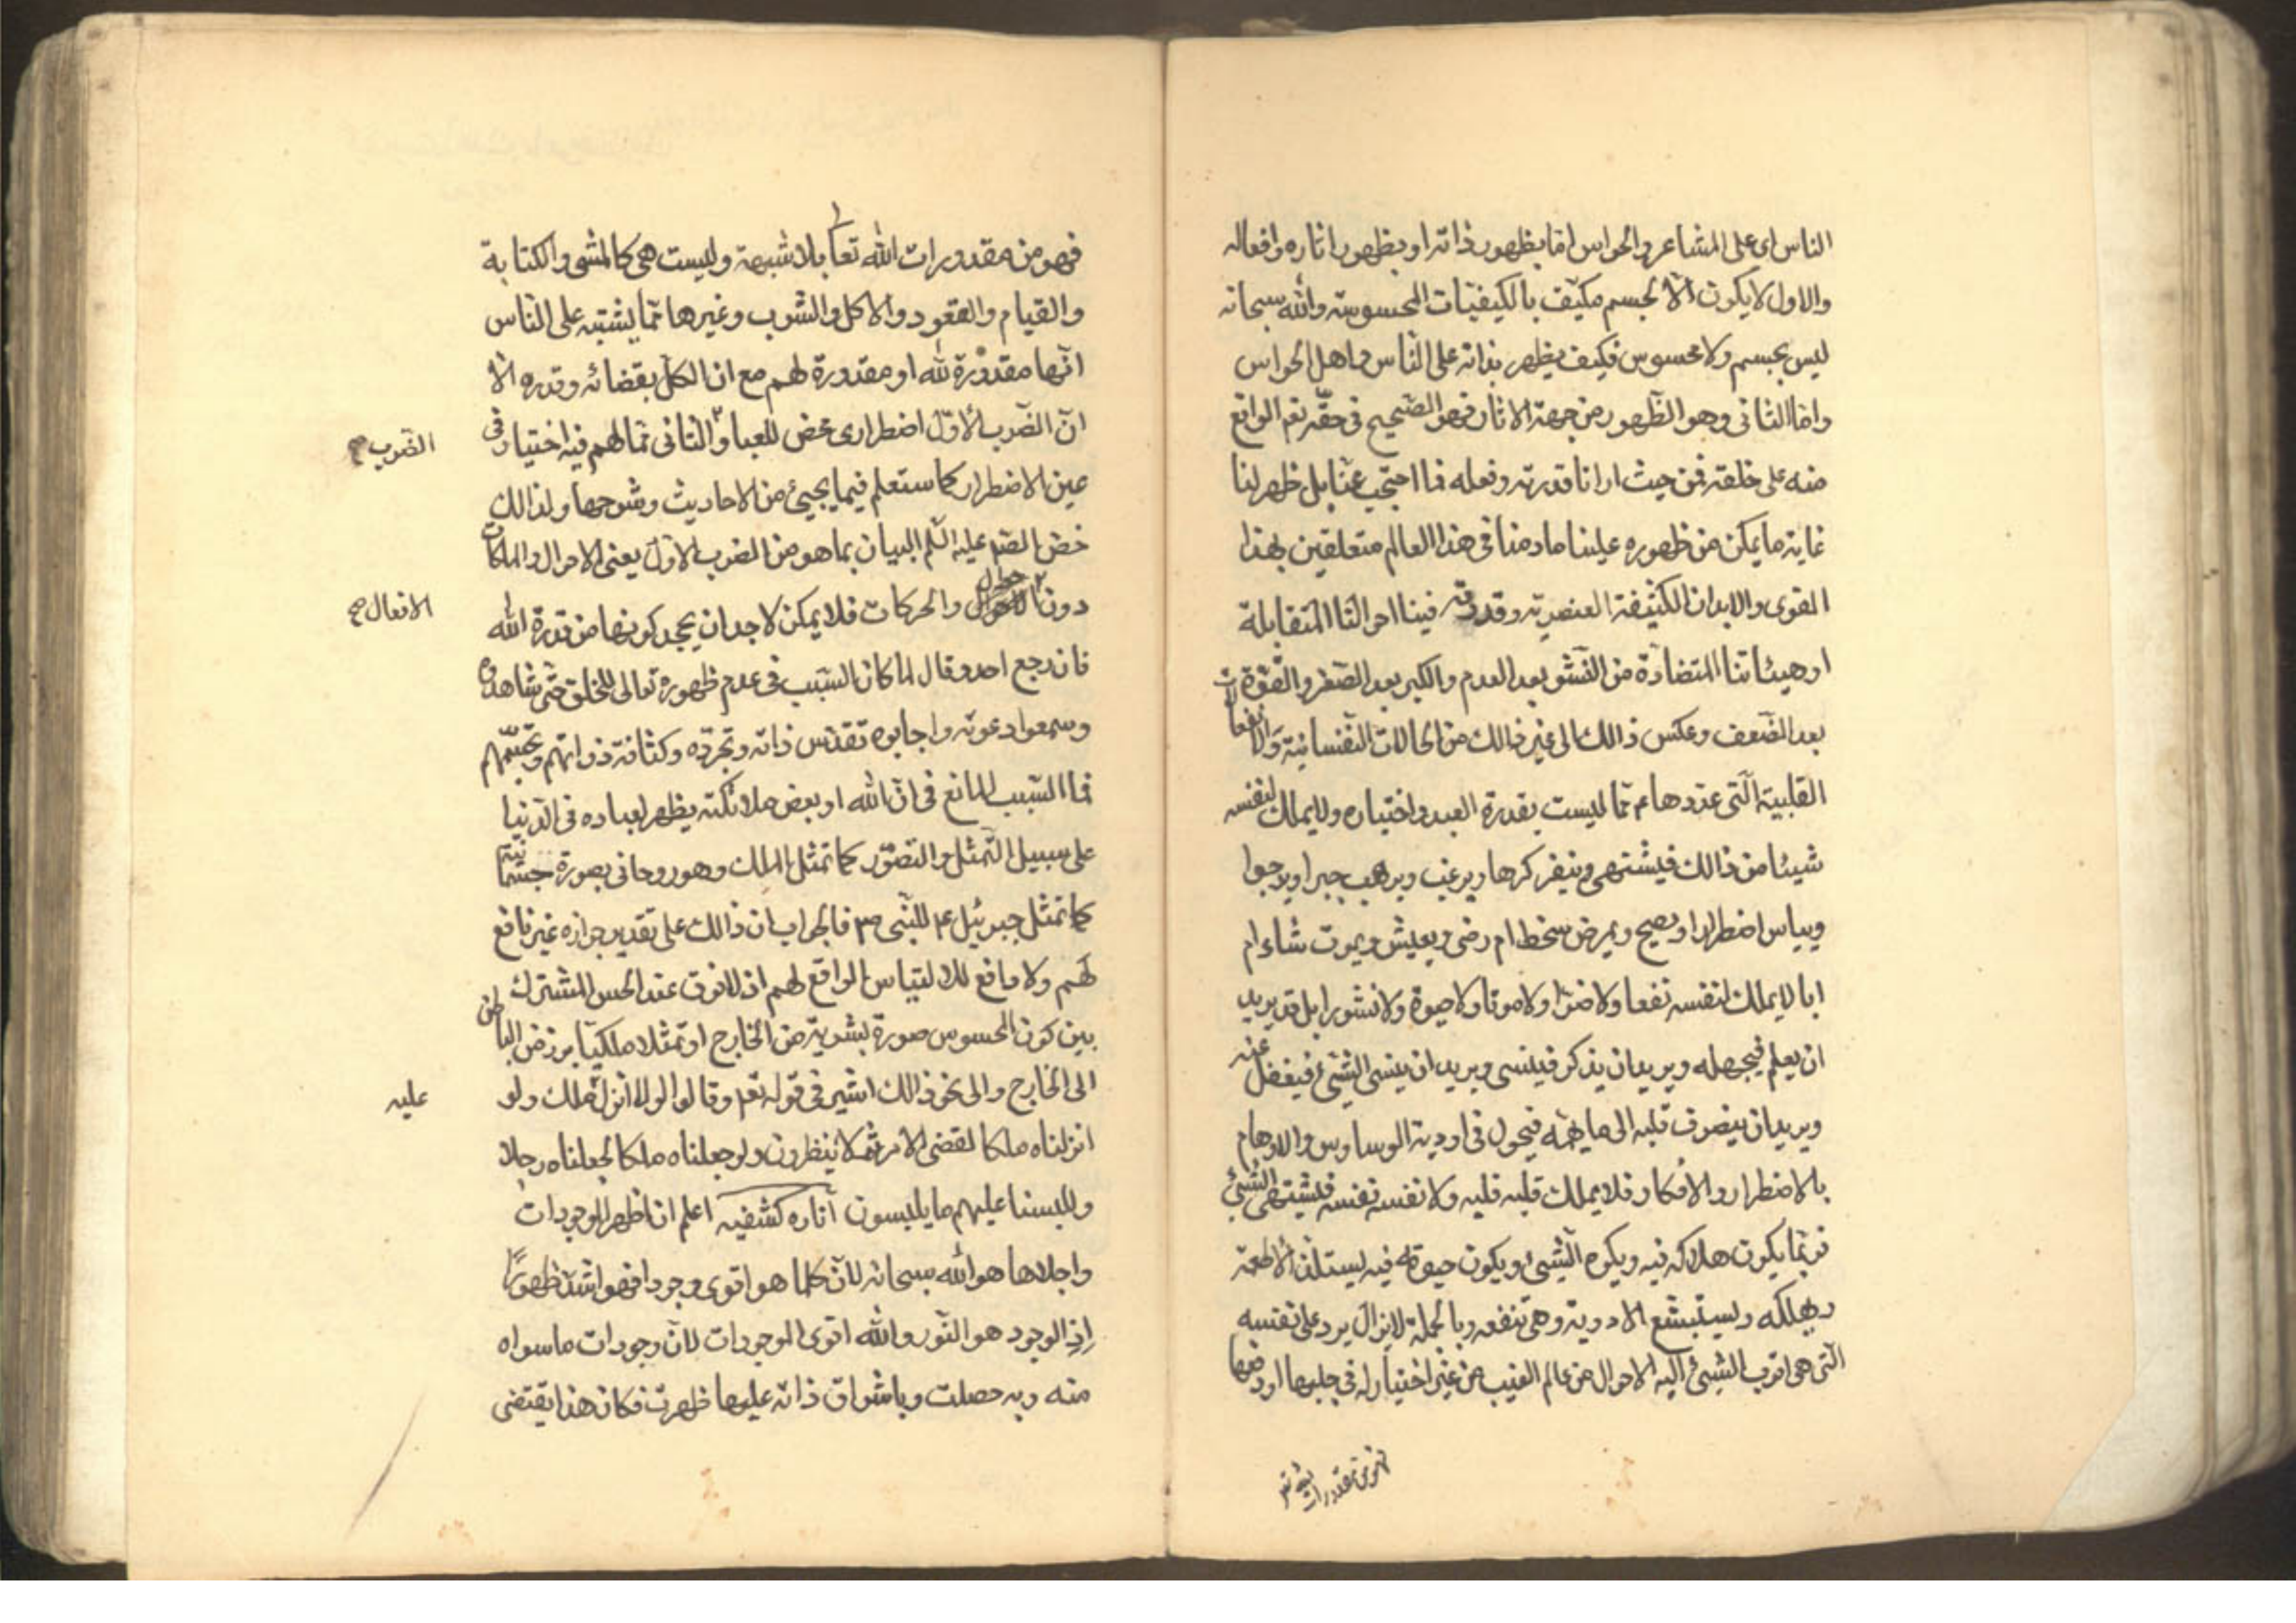 الناس اى على المشاعر والحواس اما بظهور ذاته او بظهور اثاره وافعاله
والاول لا يكون الا لجسم مكيّف بالكيفيّات المحسوسة والله سبحانه
ليس بجسم ولا محسوس فكيف يظهر بذاته على النّاس واهل الحواس
واما الثانى وهو الظّهور من جهة الاثار فهو الصّحيح فى حقّه تعم الواقع
منه على خلقه فمن حيث ارانا قدرته وفعله فما احتجب عنّا بل ظهر لنا
غاية ما يمكن من ظهوره علينا ما دمنا فى هذا العالم متعلقين بهذا
القوى والابدان الكثيفة العنصرية وقدرته فينا احوالنا المتقابلة
او هيئاتنا المتضادّة من النّشو بعد العدم والكبر بعد الصّغر والقّوة
بعد الضّعف وعكس ذالك الى غير ذالك من الحالات النّفسانيّة والانفعالات
القلبيّة الّتى عدّدها عم ممّا ليست بقدرة العبد واختياره ولا يملك لنفسه
شيئا من ذالك فيشتهى وينفر كرها ويرغب ويرهب جبرا ويرجوا
وييأس اضطرارا ويصح ويمرض سخط ام رضى ويعيش ويموت شاء ام
ابا لا يملك لنفسه نفعا ولا ضرّا ولا موتا ولا حيوة ولا نشورا بل قد يريد
ان يعلم فيجهله ويريد ان يذكر فينسى ويريد ان ينسى الشّئ فيغفل عنه
ويريد ان ينصرف قلبه الى ما يهمّه فيحول فى اودية الوساوس والاوهام
بالاضطرار والافكار فلا يملك قلبه قلبه ولا نفسه نفسه فيشتهى الشّئ
فربّما يكون هلاكه فيه ويكره الشّيئ ويكون حيوة فيه يستلذ الاطعمة
ويهلكه ويستبشع الادوية وهى تنفعه وبالجملة لايزال يرد على نفسه
الّتى هى اقرب الشّيئ اليه الاحوال من عالم الغيب من غير اختيار له فى جلبها او دفعها
فهو من مقدورات
فهو من مقدورات الله تعا بلا شبهة وليست هى كالمشى والكتابة
والقيام والقعود والاكل والشّرب وغيرها ممّا يشتبه على النّاس
انّها مقدورة لله او مقدورة لهم مع ان الكلّ بقضائه وقدره الّا
انّ الضّرب الاوّل اضطرارى محض للعباد والثانى ممّا لهم فيه اختيار فى
الضّرب صح
عين الاضطرار كما ستعلم فيما يجيئ من الاحاديث وشرحها ولذالك
خصّ عليه السّلم البيان بما هو من الضرب الاوّل يعنى الاحوال والملكات
دون والحركات فلا يمكن لاحد ان يجحد كونها من قدرة الله
الافعال صح
فان رجع احد وقال لما كان السّبب فى عدم ظهوره تعالى للخلق حتّى شاهدوه
وسمعوا دعوته واجابوه تقدّس ذاته وتجرّده وكثافة ذواتهم وتجسّمهم
فما السّبب المانع فى انّ الله او بعض ملائكته يظهر لعباده فى الدّنيا
على سبيل التّمثل والتصّور كما تمثل الملك وهو روحانى بصورة جسمانية
كما تمثل جبرئيل عم للنّبى ص فالجواب ان ذالك على تقدير جوازه غير نافع
لهم ولا مانع للالتباس الواقع لهم اذ لا فرق عند الحس المشترك
بين كون المحسوس صورة بشرية من الخارج او تمثّلا ملكيّا برز من الباطن
الى الخارج والى نحو ذالك اشير فى قوله تعم وقالوا لولا انزل ملك ولو
عليه
انزلناه ملكا لقضى الامر ثمّ لا ينظرون ولو جعلناه ملكا لجعلناه رجلا
وللبسنا عليهم ما يلبسون اناره كشفيه اعلم ان اظهر الموجودات
واجلاها هو الله سبحانه لانّ كلما هو اقوى وجودا فهو اشدّ ظهورًا
اذ الوجود هو النّور والله اقوى الموجودات لانّ وجودات ما سواه
منه وبه حصلت وباشراق ذاته عليها ظهرت فكان هذا يقتضى